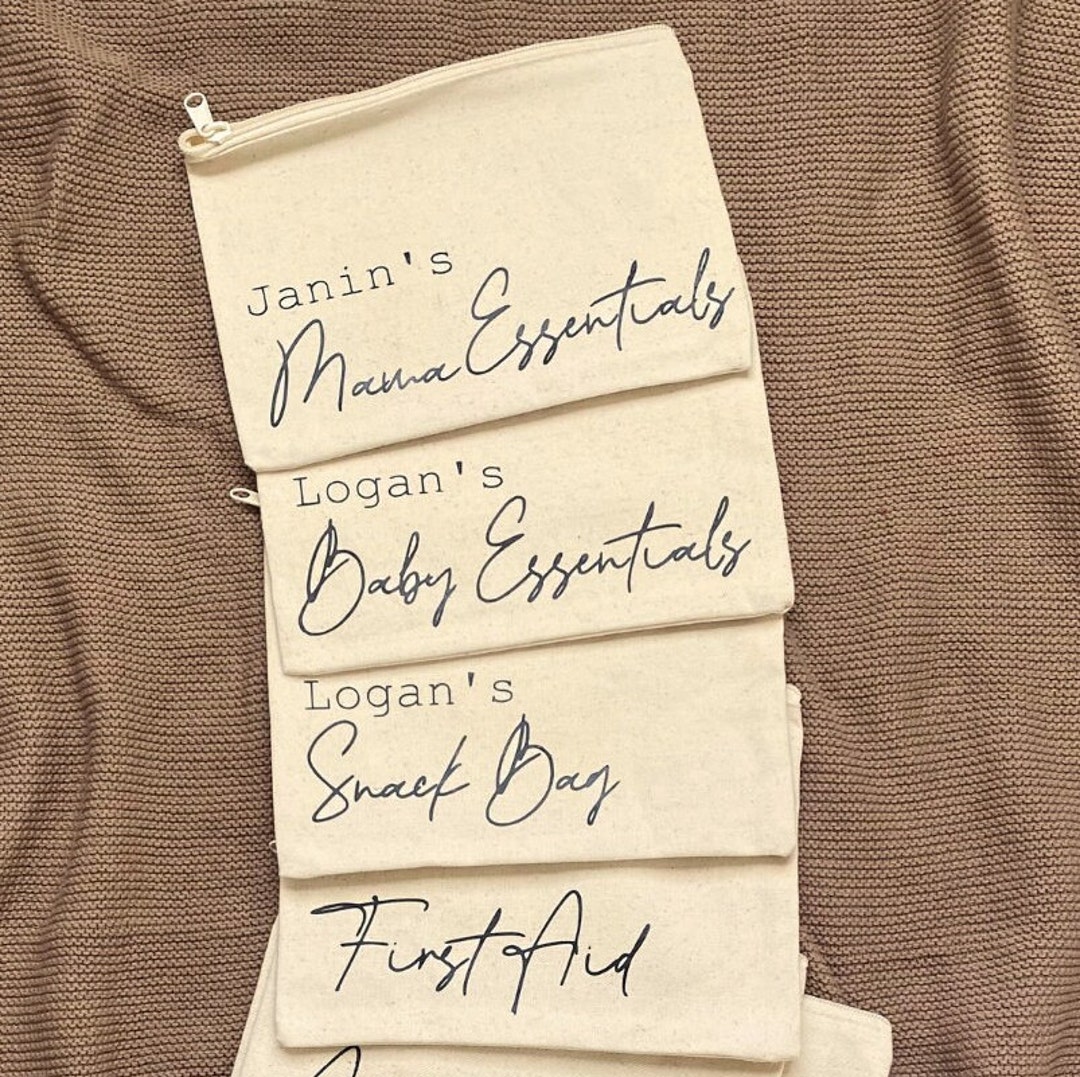 Janin's
Mama Essentials
Logan's
Baby Essentials
Logan's
Snack Bag
First Aid